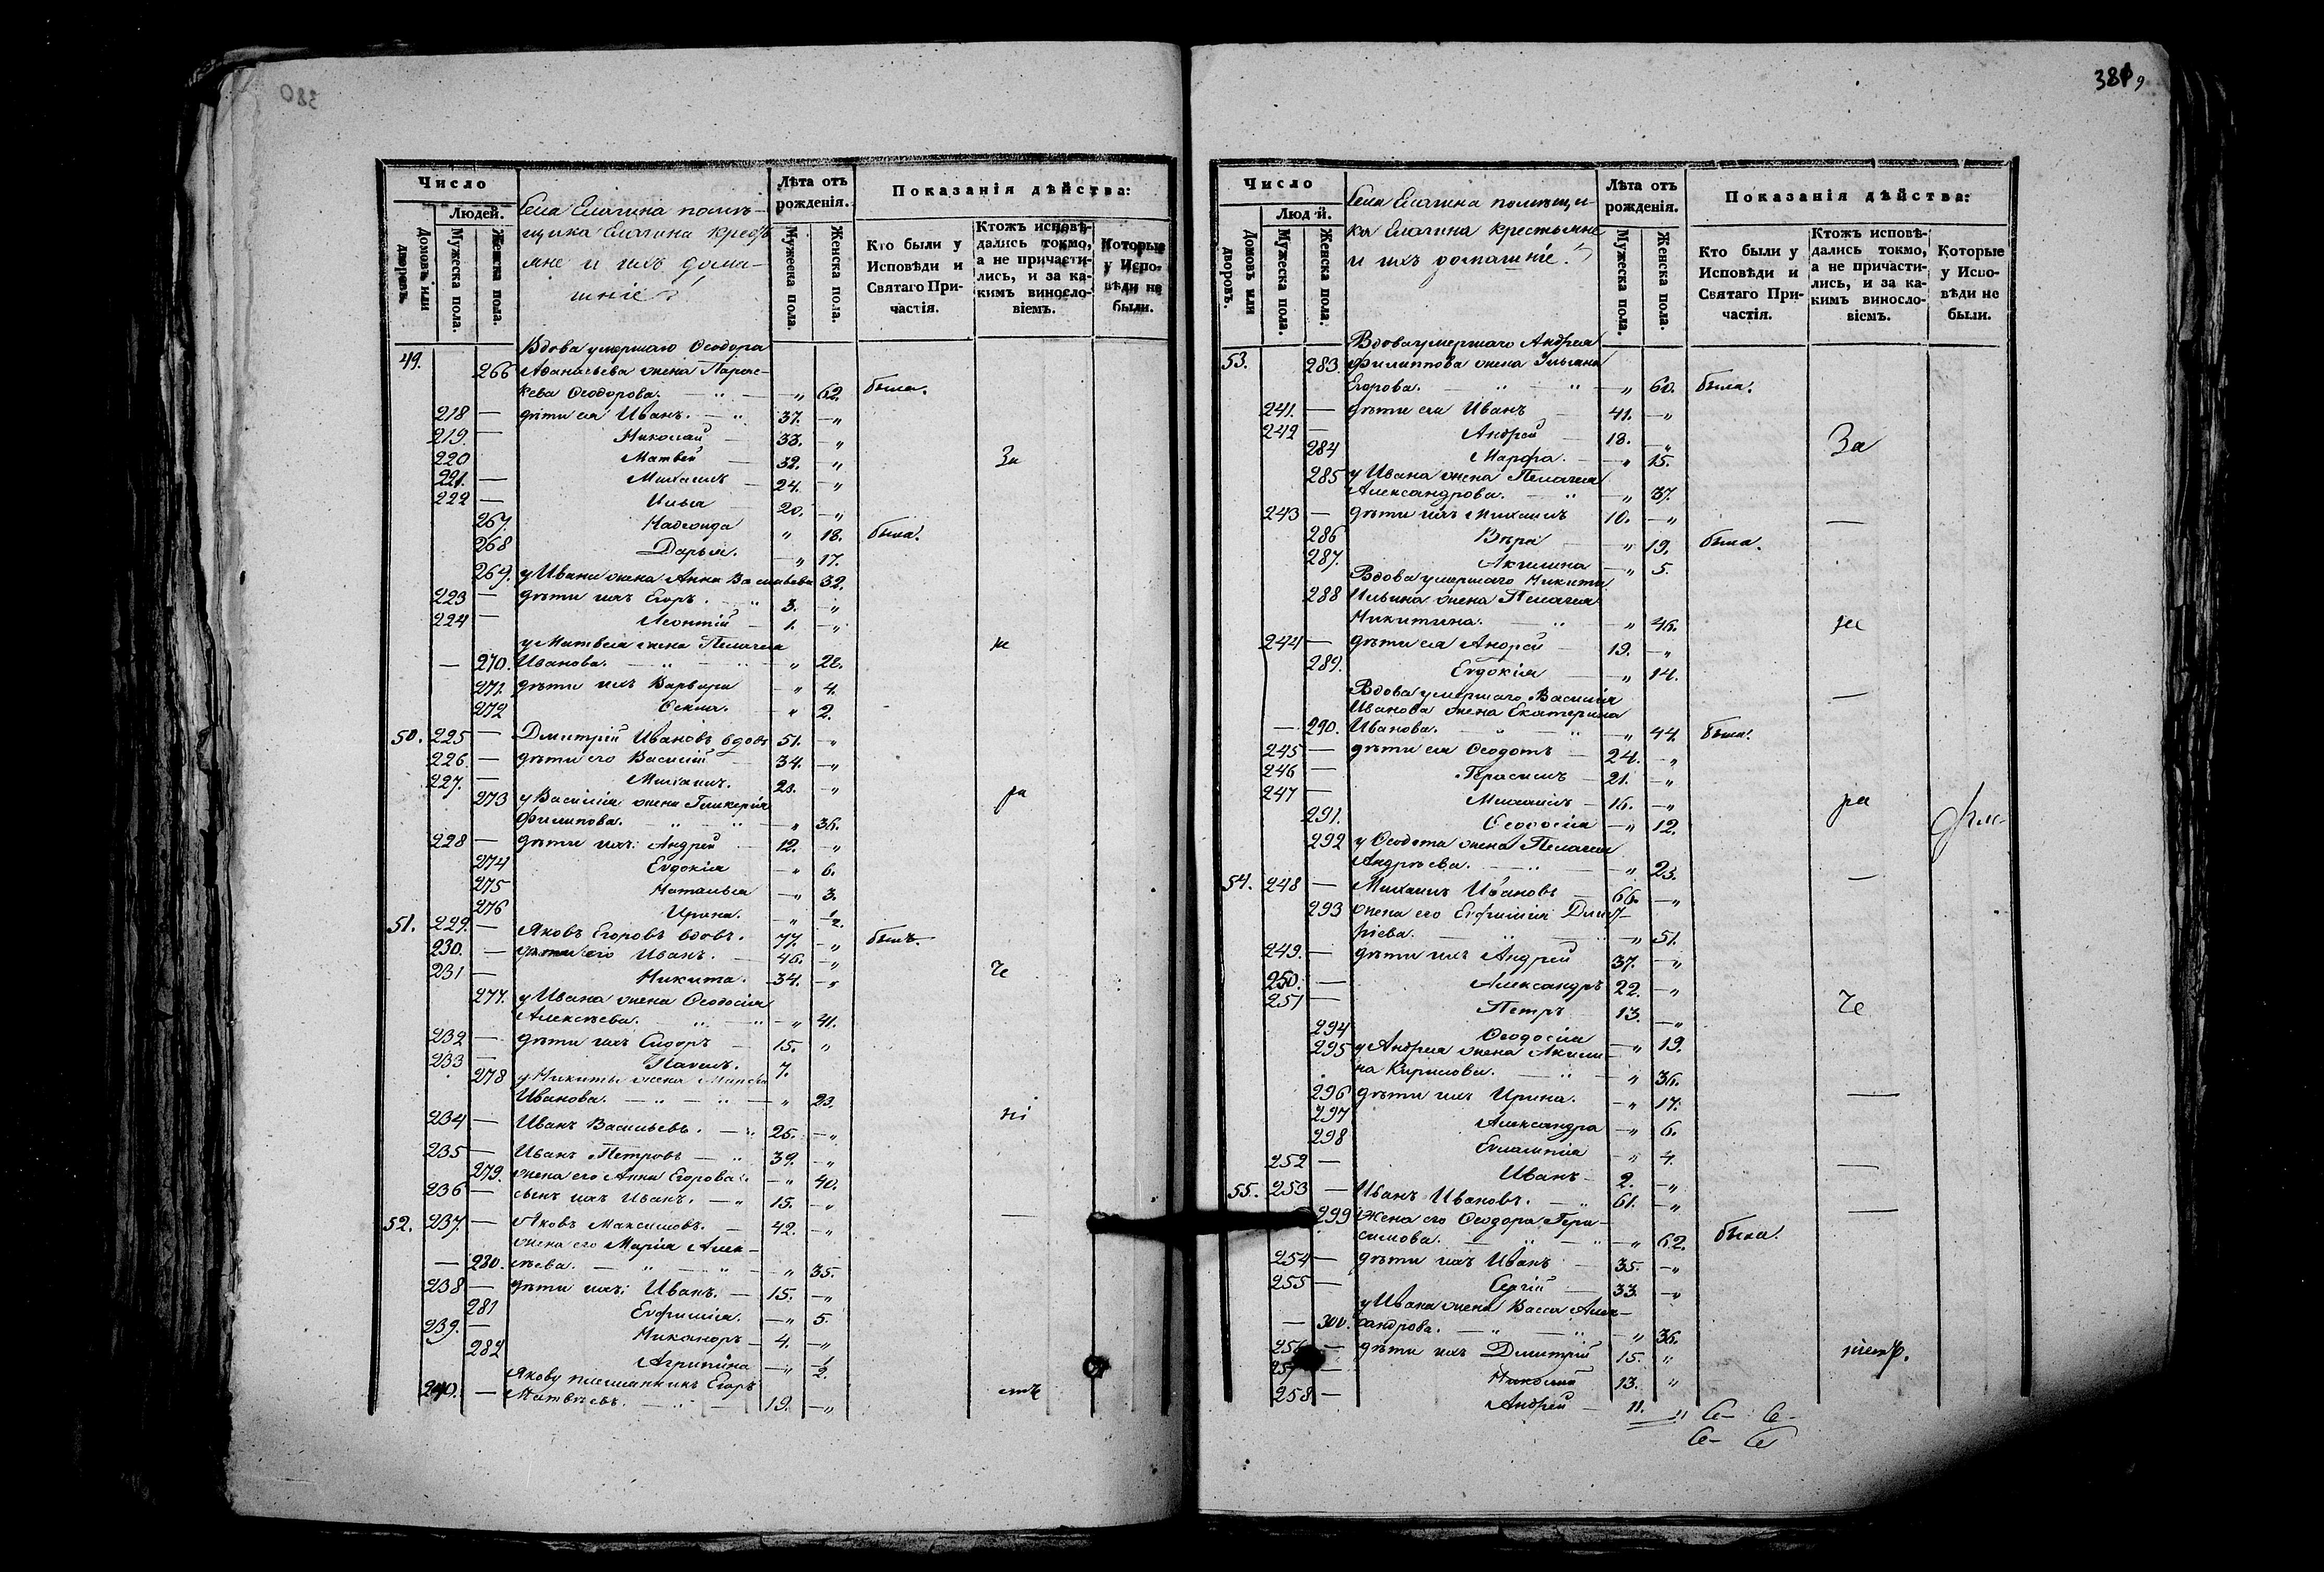 Число
Людей.
Домовъ или дворовъ.
Мужеска пола.
Женска пола.
Села Елагина помѣ-
щика Елагина кресть
яне и ихъ дома-
шніе
Лѣта отъ рожденія.
Мужеска пола.
Женска пола.
Показанія дѣйства:
Кто были у Исповѣди и Святаго При-частія.
Ктожъ исповѣ-дались токмо, а не причасти-лись, и за ка-кимъ винослo-віемъ.
Которые у Испо-вѣди не были.
Вдова умершаго Ѳеодора
49. 266 Аѳанасьева жена Парас-
кева Ѳеодорова. — „ 62. была.
218 — дѣти ея Иванъ. — 37. — „
219. — Николай — 33. — „
220 Матвей — 32. — „ За
221. — Михаилъ — 24. — „
222 — Илья 20. — „
267. Надежда „ 18. была.
268 Дарья. — „ 17.
269. у Ивана жена Анна Васильева 32.
223 — дѣти ихъ Егоръ. 3. — „
224 — Леонтій — 1. — „
у Матвея жена Пелагея не
— 270. Иванова. — „ 28.
271. дѣти ихъ Варвара — „ 4.
272 Ѳекла. — „ 2.
50. 225 — Дмитрій Ивановъ вдовъ 51. — „
226. — дѣти его Василій — 34. — „
227. — Михаилъ. 23. — „
273 у Василія жена Гликерія ра
Филипова. — „ 36.
228 — дѣти ихъ: Андрей 12. — „
274 Евдокія — „ 6.
275 Наталья — „ 3.
276 Ирина. — „ 1/2.
51. 229. — Яковъ Егоровъ вдовъ. 77. — „ былъ.
230. — дѣти его Иванъ. — 46. — „
231 — Никита. 34. — „ че
277. у Ивана жена Ѳеодосія
Алексѣева. — „ 41.
232 — дѣти ихъ Сидоръ — 15. „
233 — Павелъ. 7.
278 у Никиты жена
Иванова. — „ 23.
234 — Иванъ Васильевъ. — 25. — „ ні
235 — Иванъ Петровъ — 39. — „
279. жена его Анна Егорова. — „ 40.
236 — сынъ ихъ Иванъ. — 15. — „
52. 237. — Яковъ Максимовъ. — 42. — „
жена его Марія Алек-
— 280. сѣева. — „ 35.
238 — дѣти ихъ: Иванъ. — 15. — „
281 Евфимія. — „ 5.
239. — Никаноръ — 4. — „
282 Агрипина — „ 1/2.
Якову племянникъ Егоръ
240. — Матвѣевъ. — 19. — „
381
Число
Людей.
Домовъ или дворовъ.
Мужеска пола.
Женска пола.
Села Елагина помѣщи-
ка Елагина крестьяне
и ихъ домашніе.
Лѣта отъ рожденія.
Мужеска пола.
Женска пола.
Показанія дѣйства:
Кто были у Исповѣди и Святаго При-частія.
Ктожъ исповѣ-дались токмо, а не причасти-лись, и за ка-кимъ винослo-віемъ.
Которые у Испо-вѣди не были.
Вдова умершаго Андрея
53. 283. Филиппова жена Ульяна
Егорова. — „ 60. была.
241. — дѣти ея Иванъ 41. — „
242 — Андрей — 18. — „ За
284 Марфа. — „ 15.
285 у Ивана жена Пелагея
Александрова. — „ 37.
243 — дѣти ихъ Михаилъ 10. — „ —
286 Вѣра — „ 19. была.
287. Акилина — „ 5.
Вдова умершаго Никиты
288 Ильина жена Пелагея
Никитина. „ 46. не
244 — дѣти ея Андрей — 19. — „
289. Евдокія — „ 14.
Вдова умершаго Василія —
Иванова жена Екатерина
— 290. Иванова. — „ 44. была.
245 — дѣти ея Ѳеодотъ — 24. — „
246 — Герасимъ — 21. — „
247 — Михаилъ — 16. — „ ра
291. Ѳеодосія — „ 12.
292 у Ѳеодота жена Пелагея
Андрѣева. — „ 23.
54. 248 — Михаилъ Ивановъ — 66. — „ —
293 жена его Евфимія Дмит-
ріева. — „ 51.
249. — дѣти ихъ Андрей 37. — „
250. — Александръ 22. — „
251 — Петръ 13. — „ че
294 Ѳеодосія — „ 19.
295 у Андрея жена Акили-
на Кирилова. — „ 36.
296 дѣти ихъ Ирина. — „ 17. —
297 Александра — „ 6.
298 Евлампія „ 4.
252 — Иванъ 2. — „ —
55. 253 — Иванъ Ивановъ. — 61. — „
299 Жена его Ѳеодора Гера- —
симова. — „ 62. была.
254 — дѣти ихъ Иванъ 35. — „
255 — Сергій — 33. — „
у Ивана жена Васса Алек-
— 300. сандрова. — „ 36.
256 — дѣти ихъ Дмитрій 15. „
257 — Николай 13. „
258 — Андрей — 11. „